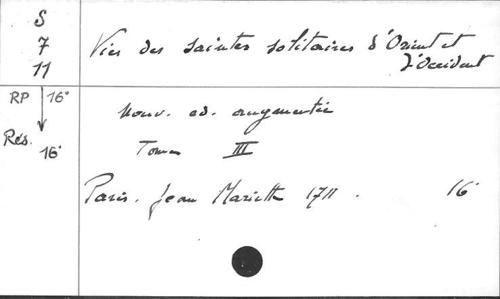 S
7
11
Vies des saintes solitaires d'Orient et
d'Occident
RP 16°
Rés. 16°
Nouv. ed. augmentée
Tome III
Paris. Jean Mariette 1711. 16°